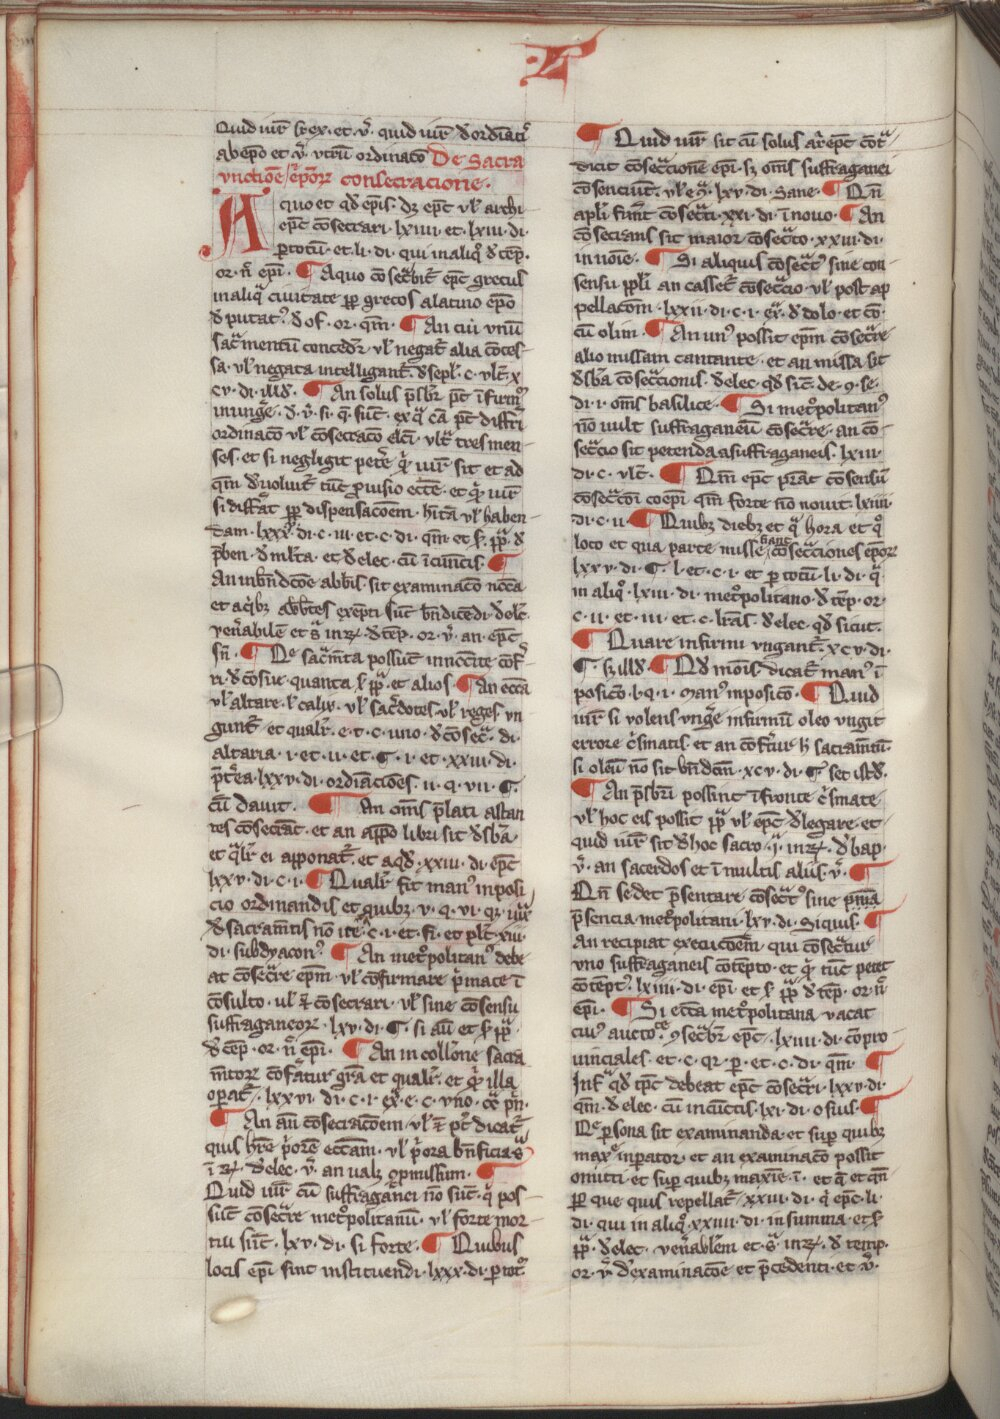 ·L·
Quid iur̄ si ex· et · ṽ· quid iur̄ d̄ ordīatꝰ
ab ep̄o et ṽ· utrū ordinac̄o De Sacra
vnctiōe / ep̄orꝝ consecracione·
A quo et qd̄ epīs· dꝫ epc̄ vl̓ archi
epc̄ cōsecrari · lxiiii · et · lxiii · di·
ꝑ totū · et · li · di · qui in aliqͦ d̄ tēp̄·
or · n̄ epī · ¶ A quo cōsecͣbit̄ epc̄ grecus
in aliqͣ ciuitate ꝓp̄ grecos a latino ep̄o
d̄putatꝰ d̄ of · or · qm̄ · ¶ An cui vnū
sacͣmentū concedit̄ vl̓ negat̄ alia cōces
sa · vl̓ negata intelligant̄ · d̄ sepl̄ · c · vlt̄ · x
cv · di · illd̄ · ¶ An solus p̄sbr̄ pt̄ īfirmͦ
inung̓e · d̄ · v̄ · si · q̄ · sūt · ex qͣ cā pt̄ differri
ordinac̄o vl̓ cōsecrac̄o elc̄i · vltͣ tres men
ses · et si negligit pet̓e qͥ iur̄ sit et ad
qm̄ d̄uoluit̄ tūc ꝓuisio eccē · et qͥ iur̄
si differat̄ ꝓp̄ dispensac̄oem · hītā vl̓ haben
dam · lxxxͥ · di · c · iii · et · c · di · qm̄ · et · s̄ · ꝓp̄ · d̄
p̄ben · d̄ ml̄ta · et · d̄ elec · cū īcunctis · ¶
An in bn̄dc̄oe abbīs · sit examinac̄o nccā
et a qͥbꝫ abb̄tes exēpti sūt bn̄dicēdi · d̄ elc̄·
ven̄abilē et s̄ in ꝝ · d̄ tēp̄ · or · v̄ · an · epc̄
sn̄ · ¶ De sacͣm̄ta possūt innccīte cōfr̄
ri · d̄ cōsue · quanta · s̄ · ꝓp̄ · et alios · ¶ An eccā
vl̓ altare · l̓ calix · vl̓ sacͣdotes vl̓ reges vn
gunt̄ · et qualr̄ · e · t · c · uno · d̄ cōsec̄ · di·
altaria · i · et · ii · et · ¶ · i · et · xxiii · di·
p̄t̓ea · lxxv · di · ordīaciōes · ii · q · vii · ¶·
cū dauit · ¶ An om̄s p̄lati astan
tes cōsecrāt · et an app̄o libri sit d̄ sbā ·
et qͣlr̄ ei apponat̄ · et a qd̄ · xxiii · di · epc̄
lxxv · di · c · i · ¶ Qualr̄ fit manꝰ inposi
cio ordinandis et quibꝫ · v · q · vi · qꝫ iux̄
d̄ sacramt̄is nō ite · c · i · et · fi · et plt̄ · xiii·
di · subdyaconꝰ · ¶ An metͦpolitanꝰ debe
at cōsecͣre epm̄ · vl̓ cōfirmare pͥmate ī
cōsulto · ul̓ ē cōsecrari · vl̓ sine cōsensu
suffraganeorꝝ · lxv · di · ¶ · si aū et s̄ · ꝓp̄ ·
d̄ tēp̄ · or · n̄ epī · ¶ An in collōne sacra
m̄torꝝ cōfͣtur gr̄a et qualr̄ · et qͥ illa
operat̄ · lxxvi · di · c · i · eꝝ · e · c · vno ·
¶ An an̄ cōsecrac̄oem · vl̓ ē pt̓ dicat̄
quis hr̄e pͥorē eccām · vl̓ pͥora bn̄ficia · s̄
ī ꝝ · d̄ elec · v̄ · an ualꝫ
Quid iur̄ cū suffragan̄ci nō sūt · qͥ pos
sūt cōsecͣre metͦpolitanū · vl̓ forte mor
tui sūt · lxv · di · si forte · ¶ Quibus
locis epī sint instituendi · lxxx · di · ꝑ totͦ
¶ Quid iur̄ sit cū solus ar̄epc̄ cōtͣ
dicit cōsecͣcionē epī · sꝫ om̄s suffraganei
cōsenciūt · vl̓ eͦ · lxv · di · Sane · ¶ Qn̄
apl̄i fūnt cōsecͣti · xxi · di · ī nouo · ¶ An
cōsecrans sit maior cōsecͣto · xxiii · di·
in noīe · ¶ Si aliquis cōsecͣtꝰ sine con
sensu ppl̄i an casset̄ cōsecͣcio · vl̓ post ap
pellacōm · lxxii · di · c · i · eꝝ · d̄ dolo · et cō·
cū olim · ¶ An unꝰ possit epm̄ cōsecͣre
alio missam cantante · et an missa sit
d̄ sbā cōsecͣcionis · d̄ elec · qd̄ sic̄ · de · ꝯse·
di · i · om̄s basilice · ¶ Si metͦpolitanꝰ
nō uult suffraganeū cōsecͣre · an cō
secͣcio sit petenda a suffraganeis · lxiii·
di · c · vlt̄ · ¶ Qm̄ epc̄ prāt cōsensū
cōsecͣcōi coepī · qm̄ forte nō nouit · lxiiii·
di · c · ii · ¶ Quibꝫ diebꝫ et qͣ hora et qͦ
loco et qua parte misse hant cōsecͣciones ep̄orꝝ
lxxv · di · ¶ · l · et · c · i · et ꝑ totū · li · di · qͥ
in aliqͦ · lxiii · di · metͦpolitano · d̄ tēp̄ · or·
c · ii · et · iii · et · c · lrās · d̄ elec · qd̄ sicut·
¶ Quare infirmi vngant̄ · xcv · di·
¶ · sꝫ illd̄ · ¶ Qd̄ mōis dicat̄ manꝰ ī
posic̄o · l · q · i · manꝰ inposic̄o · ¶ Quid
iur̄ si volens vng̓e infirmū oleo vngit
errore cͥsmatis · et an cōfert̄ur h̄ sacramtū·
si oleū nō sit bn̄dcm̄ · xcv · di · ¶ · set istd̄·
¶ An p̄sbr̄i possint ī fronte cͥsmate·
vl̓ hoc eis possit pp̄ vl̓ epc̄ d̄legare · et
quid iur̄ sit d̄ hoc sacro · q̄ · in ꝝ · d̄ bap·
v̄ · an sacerdos et ī multis aliis · v̄ · ¶
Qn̄ se det p̄sentare cōsecͣtꝰ sine pm̄a
p̄sencia metͦpolitani · lxv · di · Siquis · ¶
An recipiat execucōem · qui cōsecͣtur
vno suffraganeis cōtēpto · et qͥ tūc petet
cōtēpt̄ · lxiiii · di · epī et s̄ ꝓp̄ · d̄ tēp̄ · or · n̄
epī · ¶ Si eccā metͦpolitana vacat
cuiꝰ aucto · ꝯsecͣbr̄ epc̄ · lxiiii · di · cōpro
uinciales · et · c · qꝛ · ꝑ · et · c · di · qm̄ · ¶
Infͣ qd̄ tp̄c debeat epc̄ cōsecͣri · lxxv · di·
qm̄ · d̄ elec · cū incūctis · lxi · di · osius · ¶
De ꝑsona sit examinanda · et suꝑ quibꝫ
maxͦe inꝑator · et an examinac̄o possit
omitti · et suꝑ quibꝫ maxīe · ī · et a qͣ et qn̄
ꝑ que quis repellat̄ · xxiii · di · qͥ epc̄ · li·
di · qui in aliqͦ · xxiiii · di · in summa · et s̄
ꝓp̄ · d̄ elec · ven̄ablem et · s̄ · in ꝝ · d̄ temp·
or · v̄ · d̓ examinac̄oe et p̄cedenti · et v̄·